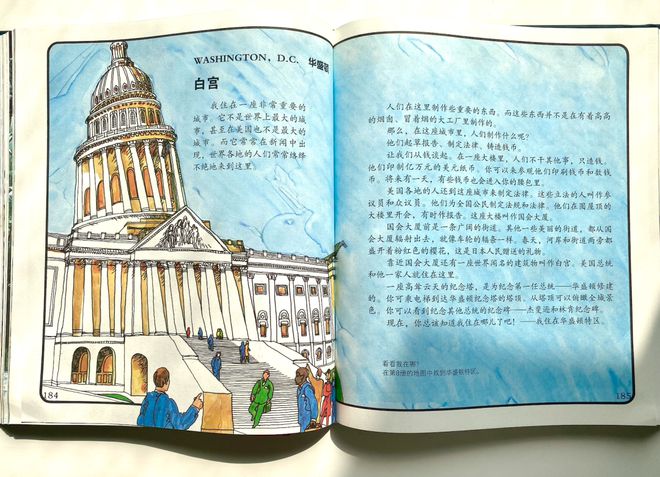 WASHINGTON, D.C. 华盛顿
白宫
我住在一座非常重要的
城市。它不是世界上最大的城
市，甚至在美国也不是最大的
城市。而它常常在新闻中出
现，世界各地的人们常常络绎
不绝地来到这里。
184
人们在这里制作些重要的东西。而这些东西并不是在有着高高
的烟囱、冒着烟的大工厂里制作的。
那么，在这座城市里，人们制作什么呢？
他们起草报告、制定法律、铸造钱币。
让我们从钱说起。在一座大楼里，人们不干其他事，只造钱。
他们印制亿万元的美元纸币。你可以来参观他们印刷钱币和数钱
币。将来有一天，有些钱币也会进入你的腰包里。
美国各地的人还到这座城市来制定法律。这些立法的人叫作参
议员和众议员。他们为全国公民制定法规和法律。他们在圆屋顶的
大楼里开会，有时作报告。这座大楼叫作国会大厦。
国会大厦前是一条广阔的街道。其他一些美丽的街道，都从国
会大厦辐射出去，就像车轮的辐条一样。春天，河岸和街道两旁都
盛开着粉红色的樱花，这是日本人民赠送的礼物。
靠近国会大厦还有一座世界闻名的建筑物叫作白宫。美国总统
和他一家人就住在这里。
一座高耸云天的纪念塔，是为纪念第一任总统——华盛顿修建
的。你可乘电梯到达华盛顿纪念塔的塔顶。从塔顶可以俯瞰全城景
色。你可以看到纪念其他总统的纪念碑——杰斐逊和林肯纪念碑。
现在，你总该知道我住在哪儿了吧！——我住在华盛顿特区。
看看我在哪？
在第8册的地图中找到华盛顿特区。
185